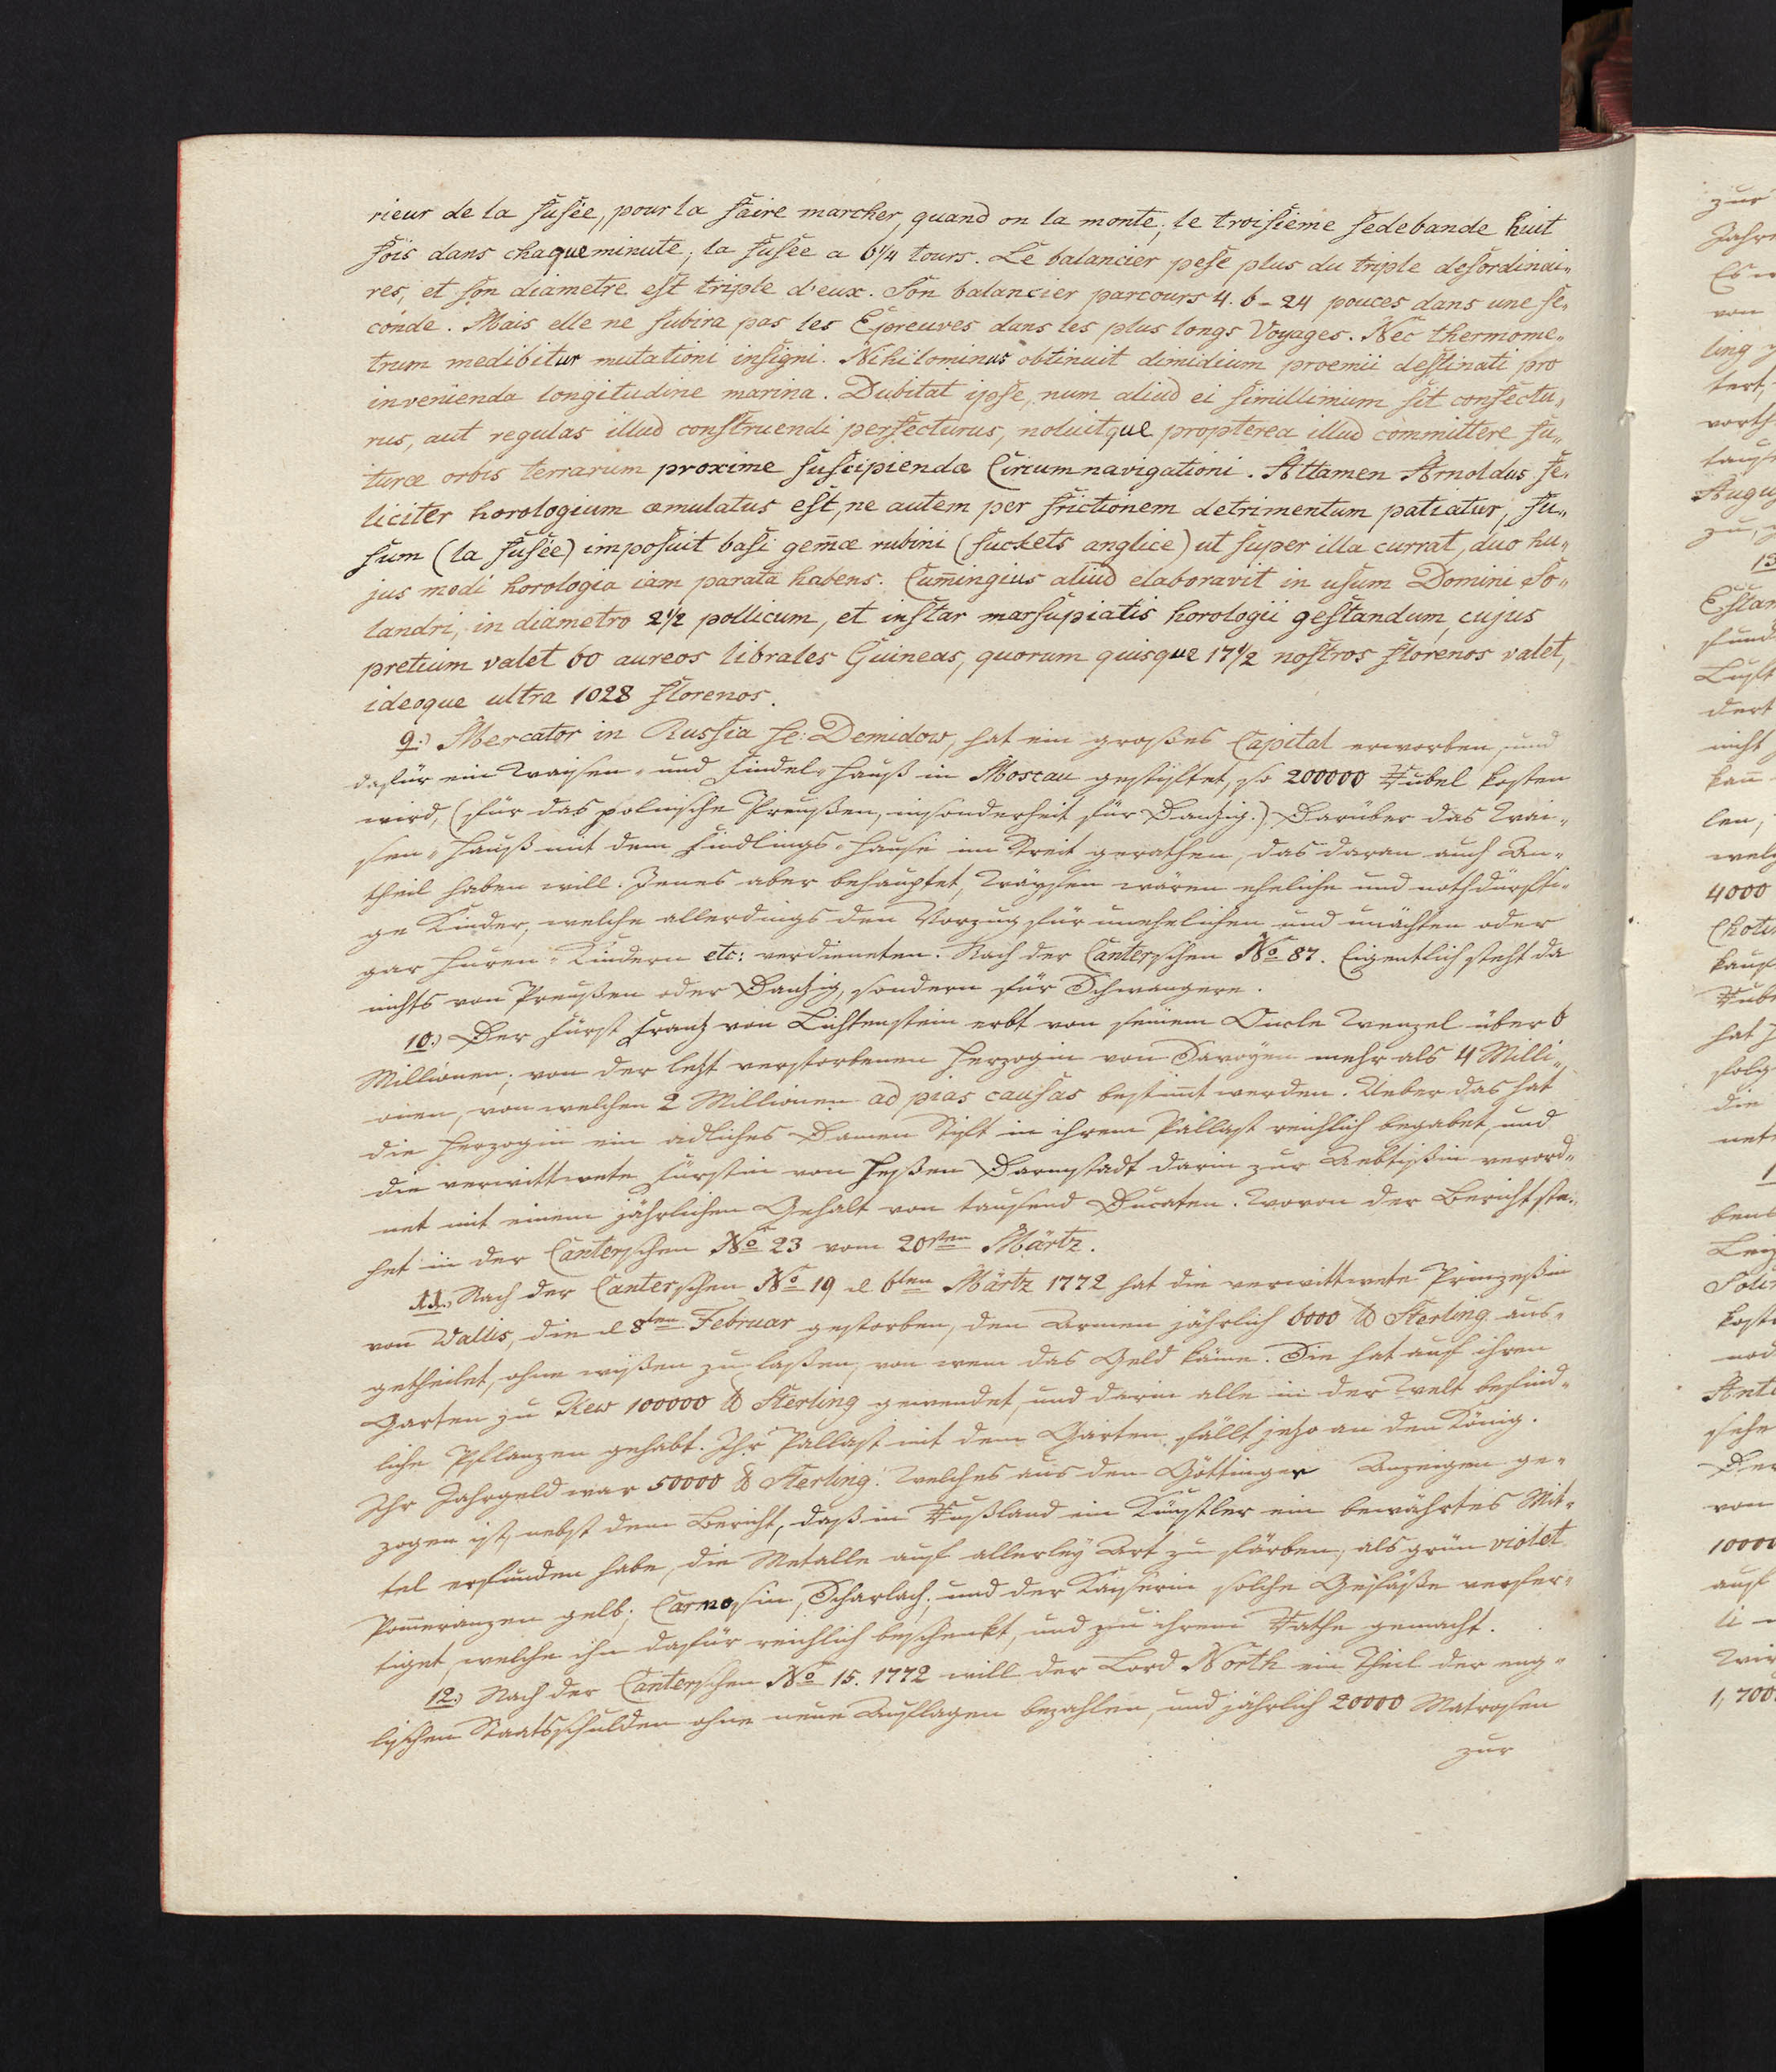 rieur de la fusée, pour la faire marcher, quand on la monte; le troisieme se debande huit
fois dans chaque minute; la fusée a 6 1/4 tours. Le balancier pese plus du triple des ordinai„
res, et son diametre est triple d'eux. Son balancier parcours 4. 6 – 24 pouces dans une se„
conde. Mais elle ne subira pas les Epreuves dans les plus longs Voyages. Nec thermome„
trum medibitur mutationi insigni. Nihilominus obtinuit dimidium proemii destinati pro
invenienda longitudine marina. Dubitat ipse, num aliud ei simillimum sit confectu„
rus, aut regulas illud construendi perfecturus, noluitque propterea illud committere fu„
turæ orbis terrarum proxime suscipiendæ Circumnavigationi. Attamen Arnoldus fe„
liciter horologium æmulatus est, ne autem per frictionem detrimentum patiatur, fu„
sum (la fusée) imposuit basi gem̄æ rubini (suckets anglice) ut super illa currat, duo hu„
jus modi horologia iam parata habens. Cum̄ingius aliud elaboravit in usum Domini So„
landri, in diametro 2 1/2 pollicum, et instar marsupiatis horologii gestandum, cujus
pretium valet 60 aureos librales Guineas, quorum quisque 17 1/2 nostros florenos valet,
ideoque ultra 1028 florenos.
9.) Mercator in Russia se: Demidow, hat ein großes Capital erworben, und
dafür ein Waysen- und Findel-Hauß in Moscau gestiftet, so 200000 Rubel kosten
wird, (für das polnische Preußen, insonderheit für Dantzig.) Darüber das Wai„
sen-Hauß mit dem Findlings-Hause im Streit gerathen, das daran auch An„
theil haben will. Jenes aber behauptet, Wäysen wären eheliche und nothdürfti„
ge Kinder, welche allerdings den Vorzug für unehelichen und unächten oder
gar Huren-Kindern etc: verdieneten. Nach der Canterschen No 87. Eigentlich steht da
nichts von Preußen oder Dantzig, sondern für Schwangere.
10.) Der Fürst Frantz von Lichtenstein erbt von seinem Oncle Wenzel über 6
Millionen; von der letzt verstorbenen Herzogin von Savoyen mehr als 4 Milli„
onen, von welchen 2 Millionen ad pias causas bestim̄t werden. Ueber das hat
die Herzogin ein adliches Damen Stift in ihrem Pallast reichlich begabet, und
die verwittwete Fürstin von Heßen Darmstadt darin zur Aebtißin verord„
net mit einem jährlichen Gehalt von tausend Ducaten. Wovon der Bericht ste„
het in der Canterschen No 23 vom 20sten Märtz.
11.) Nach der Canterschen No 19 d 6ten Märtz 1772 hat die verwittwete Prinzeßin
von Wallis, die d 8ten Februar gestorben, den Armen jährlich 6000 ℔ Sterling aus„
getheilet, ohne wißen zu laßen, von wem das Geld käme. Sie hat auf ihren
Garten zu Kew 100000 ℔ Sterling gewendet, und darin alle in der Welt befind„
liche Pflanzen gehabt. Ihr Pallast mit dem Garten fällt jetzo an den König.
Ihr Jahrgeld war 50000 ℔ Sterling. Welches aus den Göttinger Anzeigen ge„
zogen ist, nebst dem Bericht, daß in Rußland ein Künstler ein bewährtes Mit„
tel erfunden habe, die Metalle auf allerley Art zu färben, als grün violet
Pom̄eranzen gelb, Carmosin, Scharlach; und der Kayserin solche Gefäße verfer„
tiget, welche ihn dafür reichlich beschenkt, und zu ihrem Rathe gemacht.
12.) Nach der Canterschen No 15. 1772 will der Lord North ein Theil der eng„
lischen Staatsschulden ohne neue Auflagen bezahlen, und jährlich 20000 Matrosen
zur